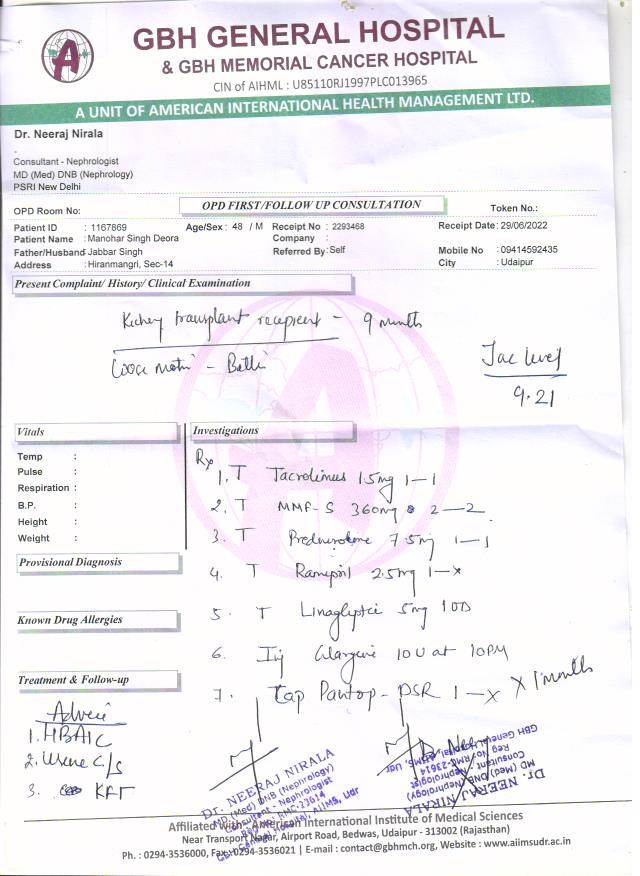 GBH GENERAL HOSPITAL
& GBH MEMORIAL CANCER HOSPITAL
CIN of AIHML : U85110RJ1997PLC013965
A UNIT OF AMERICAN INTERNATIONAL HEALTH MANAGEMENT LTD.
Dr. Neeraj Nirala
Consultant - Nephrologist
MD (Med) DNB (Nephrology)
PSRI New Delhi
OPD Room No:
OPD FIRST/FOLLOW UP CONSULTATION
Token No.:
Patient ID : 1167869 Age/Sex : 48 / M Receipt No : 2293468 Receipt Date: 29/06/2022
Patient Name : Manohar Singh Deora Company :
Father/Husband Jabbar Singh Referred By : Self Mobile No : 09414592435
Address : Hiranmangri, Sec-14 City : Udaipur
Present Complaint/ History/ Clinical Examination
Kidney transplant recepient - 9 months
Tac level
9.21
Vitals
Investigations
Temp :
Pulse :
Respiration :
B.P. :
Height :
Weight :
Rx
1. T Tacrolimus 1.5mg 1-1
2. T MMF-S 360mg 2-2
3. T Prednisolone 7.5mg 1-1
4. T Ramipril 2.5mg 1-x
5. T Linagliptin 5mg 1OD
6. Inj Glargine 10U at 10PM
7. Cap Pantop-DSR 1-x x 1 months
Provisional Diagnosis
Known Drug Allergies
Treatment & Follow-up
Advice
1. HBA1C
2. Urine C/S
3. KFT
Dr. NEERAJ NIRALA
MD (Med) DNB (Nephrology)
Consultant - Nephrologist
Reg No. RMC-23614
GBH General Hospital, AIIMS, Udr
Dr. NEERAJ NIRALA
MD (Med) DNB (Nephrology)
Consultant - Nephrologist
Reg No. RMC-23614
GBH General Hospital, AIIMS, Udr
Affiliated With: American International Institute of Medical Sciences
Near Transport Nagar, Airport Road, Bedwas, Udaipur - 313002 (Rajasthan)
Ph. : 0294-3536000, Fax : 0294-3536021 | E-mail : contact@gbhmch.org, Website : www.aiimsudr.ac.in